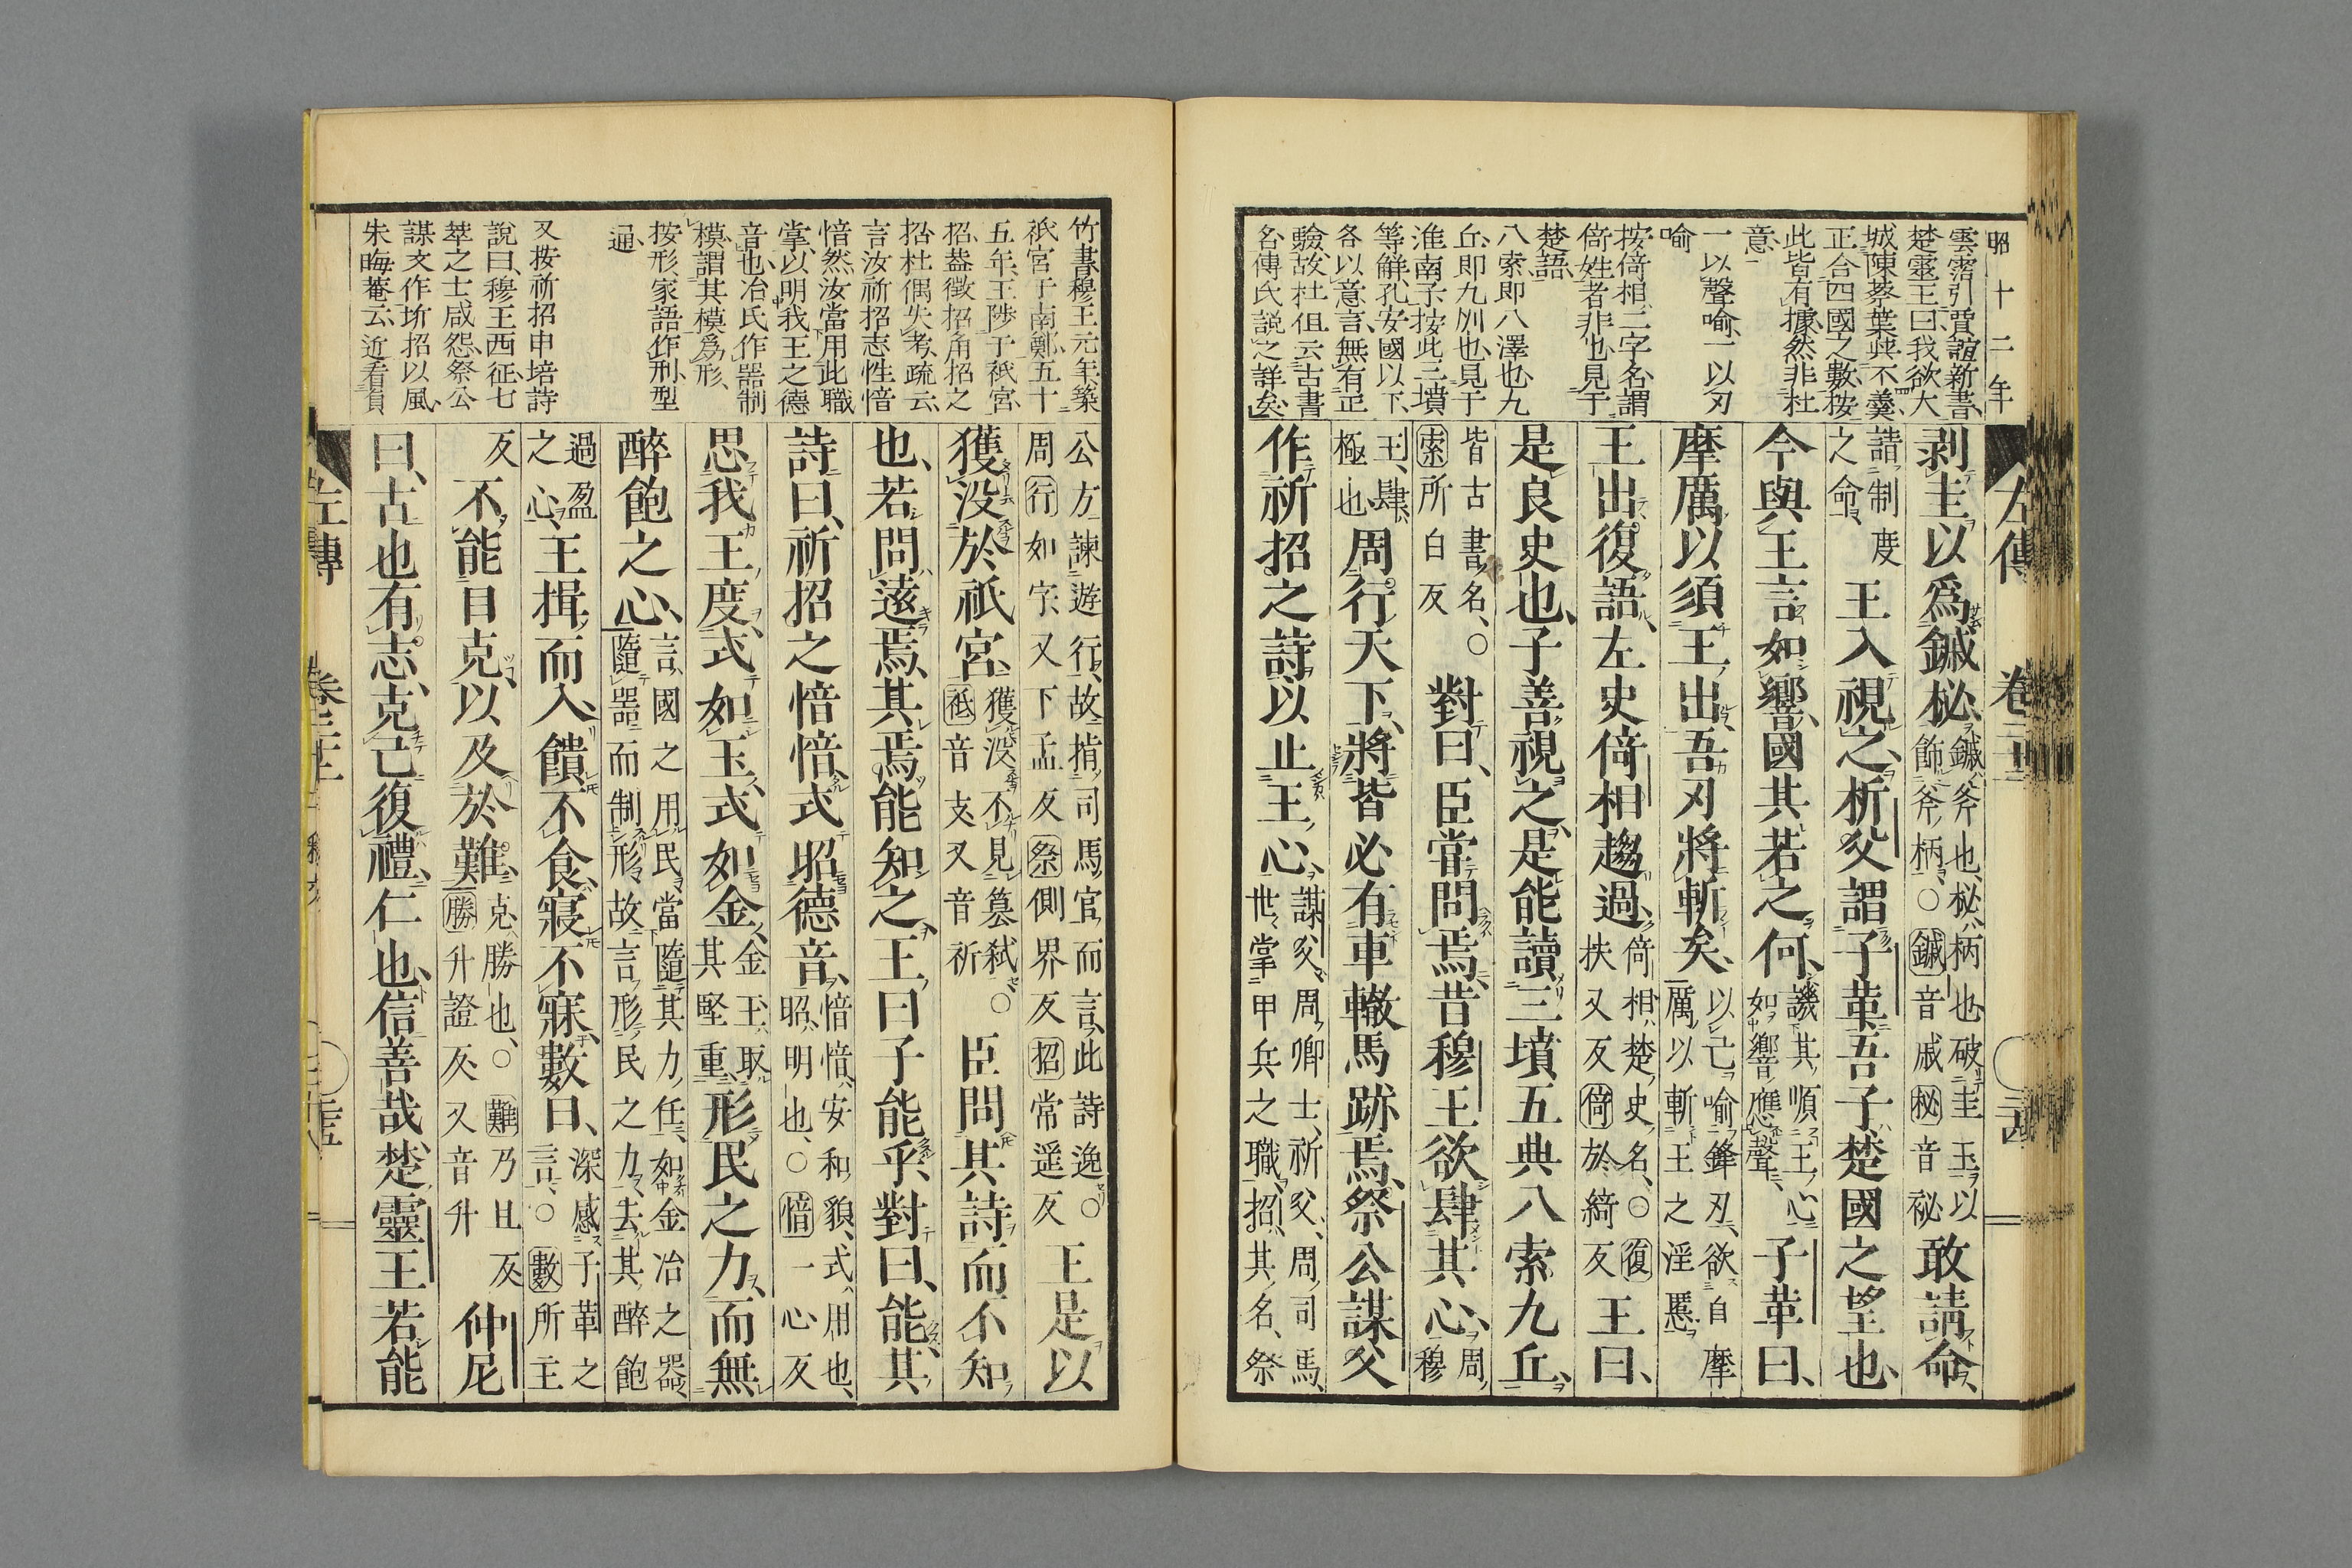 昭十二年
雲霈引賈誼新書
楚靈王曰我欲大
城陳蔡葉與不羹
正合四國之數按
此皆有據然非杜
意
一以聲喩一以刃
喩
按倚相二字名謂
倚姓者非也見于
楚語
八索即八澤也九
丘即九州也見于
淮南子按此三墳
等解孔安國以下
各以意言無有正
驗故杜但云古書
名傳氏説之詳矣
左傳 卷二十二
剥圭以爲鏚柲鏚斧也柲柄也破圭玉以飾斧柄○鏚音戚柲音祕敢請命
請制度之命王入視之析父謂子革吾子楚國之望也
今與王言如響國其若之何譏其順王心如響應聲子革曰
摩厲以須王出吾刃將斬矣以己喻鋒刃欲自摩厲以斬王之淫慝
王出復語左史倚相趨過倚相楚史名○復扶又反倚於綺反王曰
是良史也子善視之是能讀三墳五典八索九丘
皆古書名○索所白反對曰臣嘗問焉昔穆王欲肆其心周穆
王肆極也周行天下將皆必有車轍馬跡焉祭公謀父
作祈招之詩以止王心謀父周卿士祈父周司馬世掌甲兵之職招其名祭
竹書穆王元年築
祇宮于南鄭五十
五年王陟于祇宮
招葢徴招角招之
招杜偶失考疏云
言汝祈招志性愔
愔然汝當用此職
掌以明我王之德
音也冶氏作器制
模謂其模爲形
按形家語作刑型
通
又按祈招申培詩
說曰穆王西征七
萃之士咸怨祭公
謀父作圻招以風
朱晦菴云近看貟
公方諫遊行故指司馬官而言此詩逸○周行如字又下孟反祭側界反招常遥反王是以
獲没於祇宮獲没不見篡弑○祇音支又音祈臣問其詩而不知
也若問遠焉其焉能知之王曰子能乎對曰能其
詩曰祈招之愔愔式昭德音愔愔安和貌式用也昭明也○愔一心反
思我王度式如玉式如金金玉取其堅重形民之力而無
醉飽之心言國之用民當隨其力任如金冶之器隨器而制形故言形民之力去其醉飽
過盈之心王揖而入饋不食寢不寐數日深感子革之言○數所主
反不能自克以及於難克勝也○勝升證反又音升難乃旦反仲尼
曰古也有志克己復禮仁也信善哉楚靈王若能
左傳 卷二十二